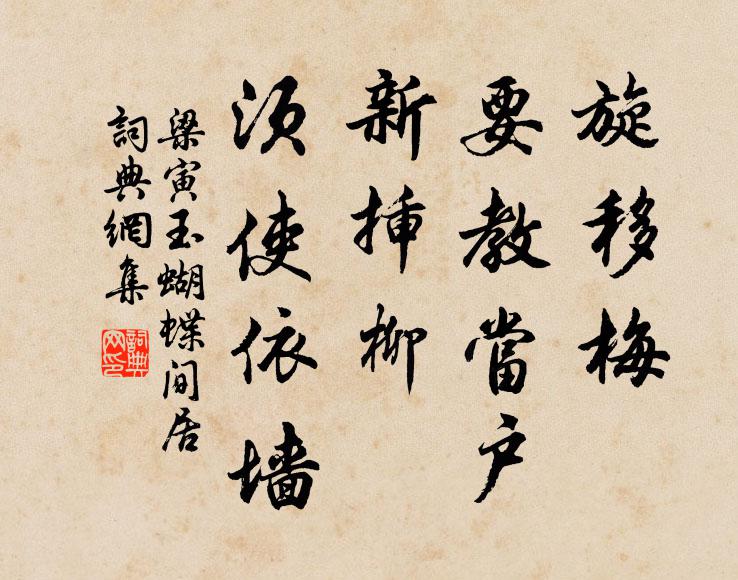 旋移梅
要教當户
新挿柳
須使依墙
梁寅玉蝴蝶间居
詞典網集
詞典
网印